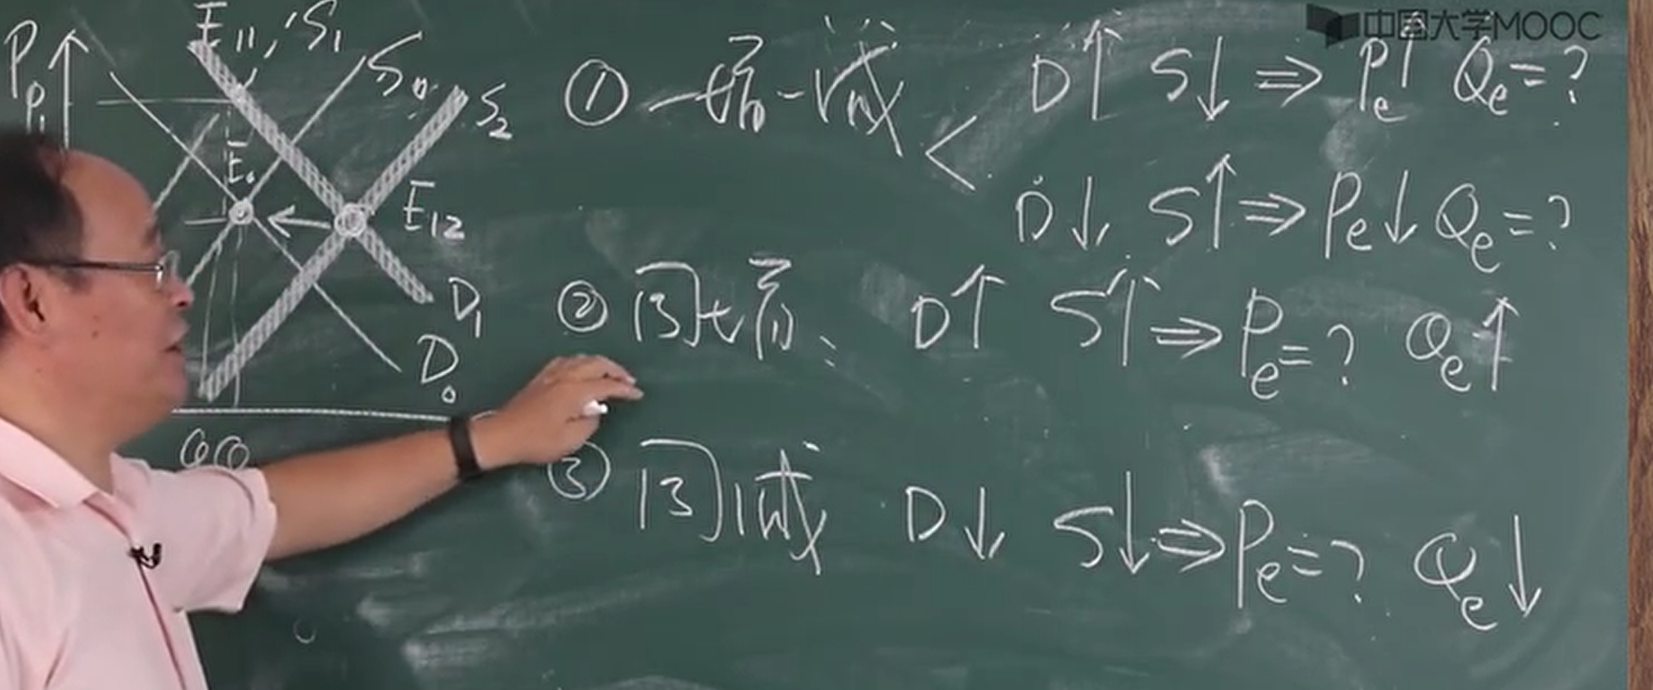 中国大学MOOC
P
P₁
E₁₁
S₁
S₀
S₂
E₀
E₁₂
D₁
D₀
Q Q
① 一增一减 < D↑ S↓ ⇒ Pe↑ Qe=?
D↓ S↑ ⇒ Pe↓ Qe=?
② 同增: D↑ S↑ ⇒ Pe=? Qe↑
③ 同减 D↓ S↓ ⇒ Pe=? Qe↓